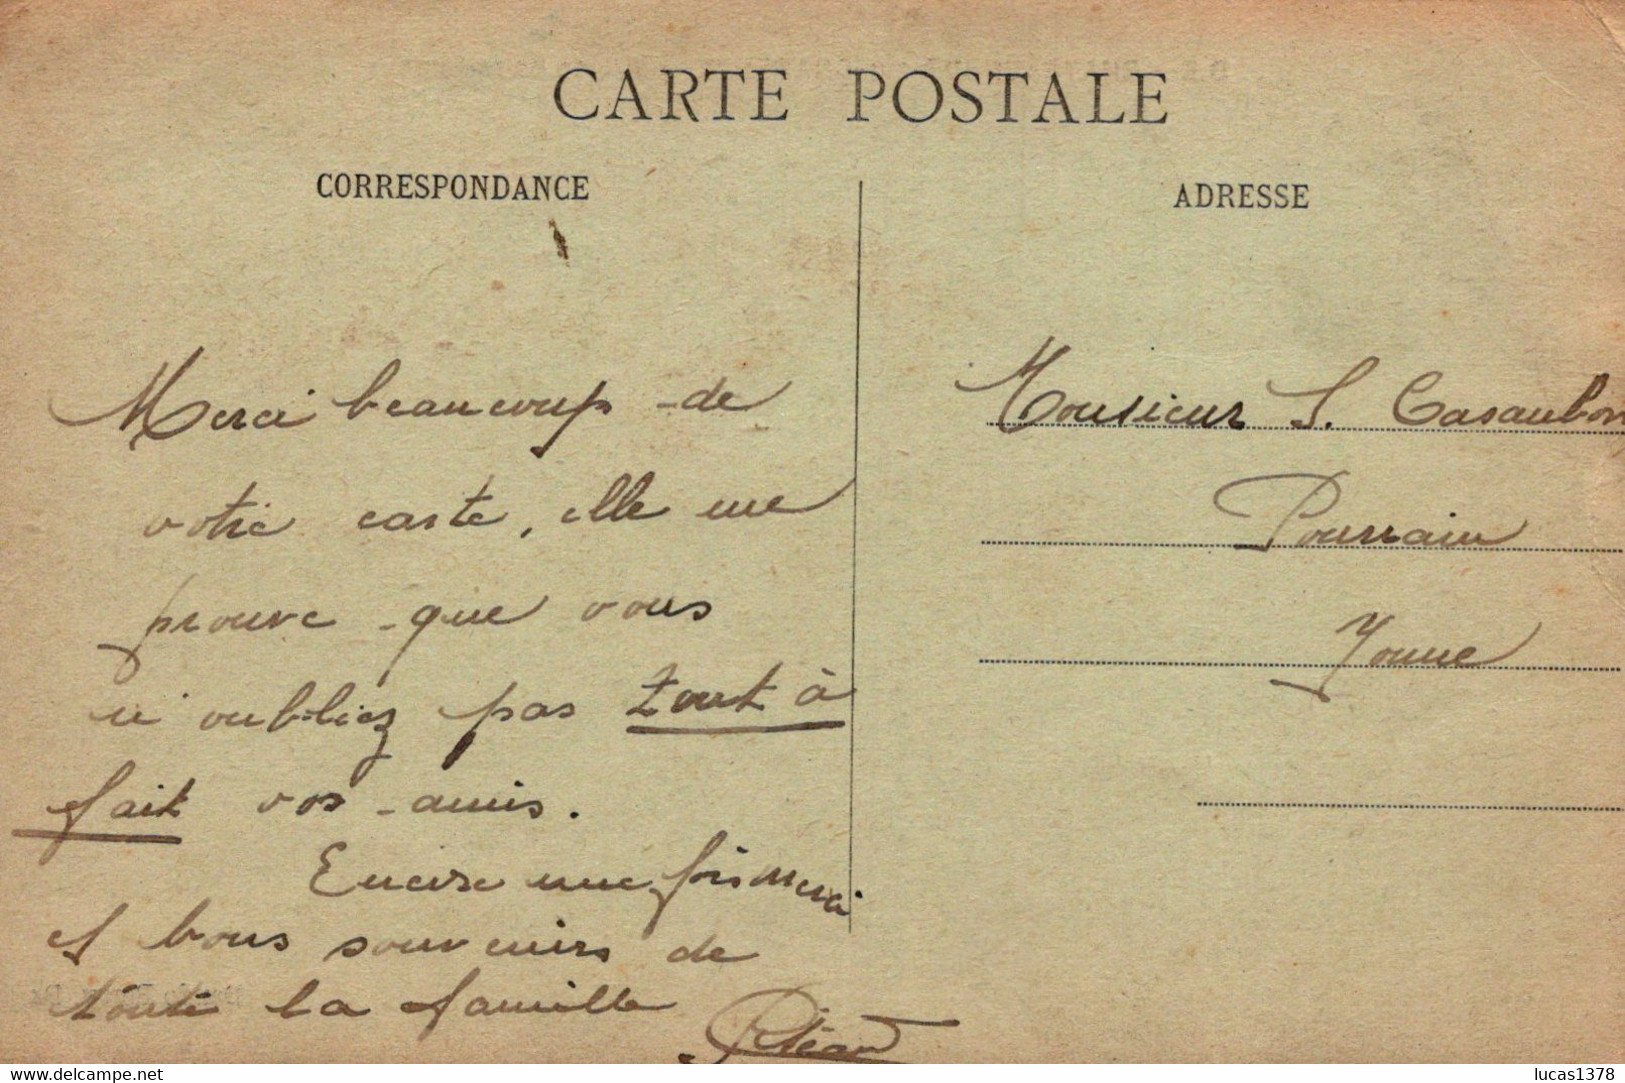 CARTE POSTALE
CORRESPONDANCE
Merci beaucoup de
votre carte, elle me
prouve que vous
n'oubliez pas tout à
fait vos amis.
Encore une fois merci
et bons souvenirs de
toute la famille
ADRESSE
Monsieur S. Casaubon
Pourrain
Yonne
www.delcampe.net
lucas1378